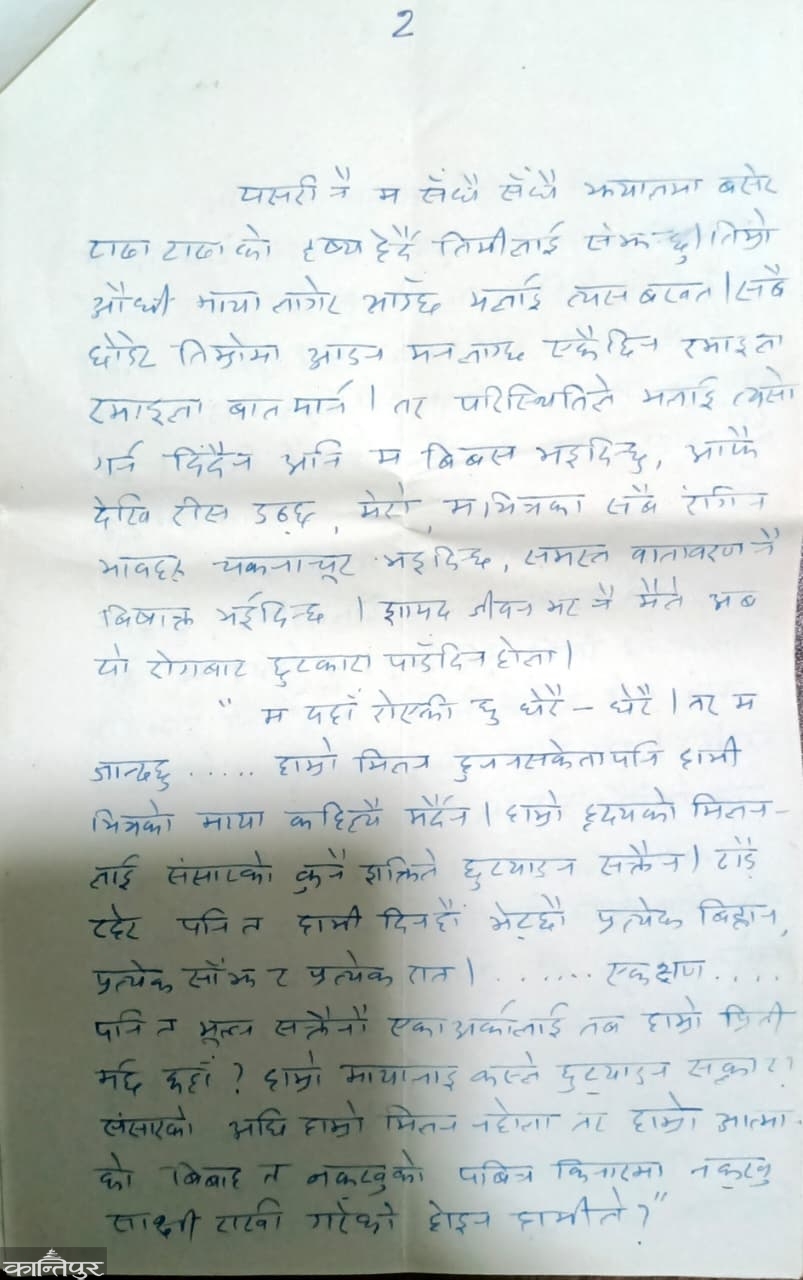 2
यसरी नै म सँधै सँधै झ्यालमा बसेर
टाढा टाढा को दृष्य हेर्दै तिमीलाई संझन्छु। तिम्रो
औधी माया लागेर आउँछ मलाई त्यस बखत। सबै
छोडेर तिम्रोमा आउन मनलाग्छ एकैछिन रमाइला
रमाइला बात मार्न। तर परिस्थितिले मलाई त्यसो
गर्न दिंदैन अनि म बिबस भइदिन्छु, आफै
देखि रीस उठ्छ, मेरो, म भित्रका सबै रंगिन
भावहरु चकनाचूर भइदिन्छ, समस्त वातावरण नै
बिषाक्त भईदिन्छ। शायद जीवन भर नै मैले अब
यो रोगबाट छुटकारा पाउँदिन होला।
" म यहाँ रोएकी छु धेरै - धेरै। तर म
जान्दछु ..... हाम्रो मिलन हुननसकेतापनि हामी
भित्रको माया कहिल्यै मर्दैन। हाम्रो हृदयको मिलन-
लाई संसारको कुनै शक्तिले छुट्याउन सक्तैन। टाढै
रहेर पनि त हामी दिनहौं भेट्छौं प्रत्येक बिहान,
प्रत्येक साँझ र प्रत्येक रात। ....... एक क्षण ....
पनि त भूल्न सक्तैनौं एका अर्कालाई तब हाम्रो प्रिती
मर्छ कहाँ? हाम्रो मायालाइ कस्ले छुट्याउन सक्छ र?
संसारको अघि हाम्रो मिलन नहोला तर हाम्रो आत्मा-
को बिबाह त नकखुको पबित्र किनारमा नकखु
साक्षी राखी गरेको होइन हामीले?"
कान्तिपुर